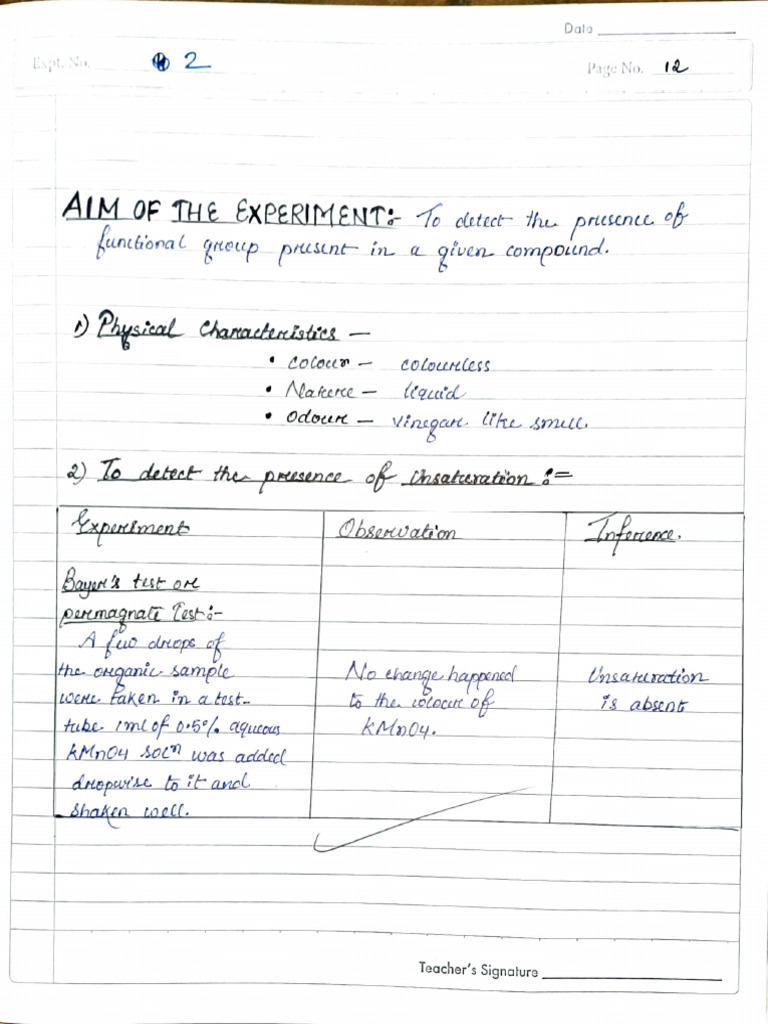 Date
Expt. No. 2
Page No. 12
AIM OF THE EXPERIMENT:- To detect the presence of
functional group present in a given compound.
1) Physical Characteristics —
• colour — colourless
• Nature — liquid
• Odour — vinegar like smell.
2) To detect the presence of Unsaturation :=
Experiment
Observation
Inference.
Bayer's test or
permagnate Test:-
A few drops of
the organic sample
were taken in a test-
tube 1ml of 0.5% aqueous
KMnO4 solⁿ was added
dropwise to it and
shaken well.
No change happened
to the colour of
KMnO4.
Unsaturation
is absent
Teacher's Signature